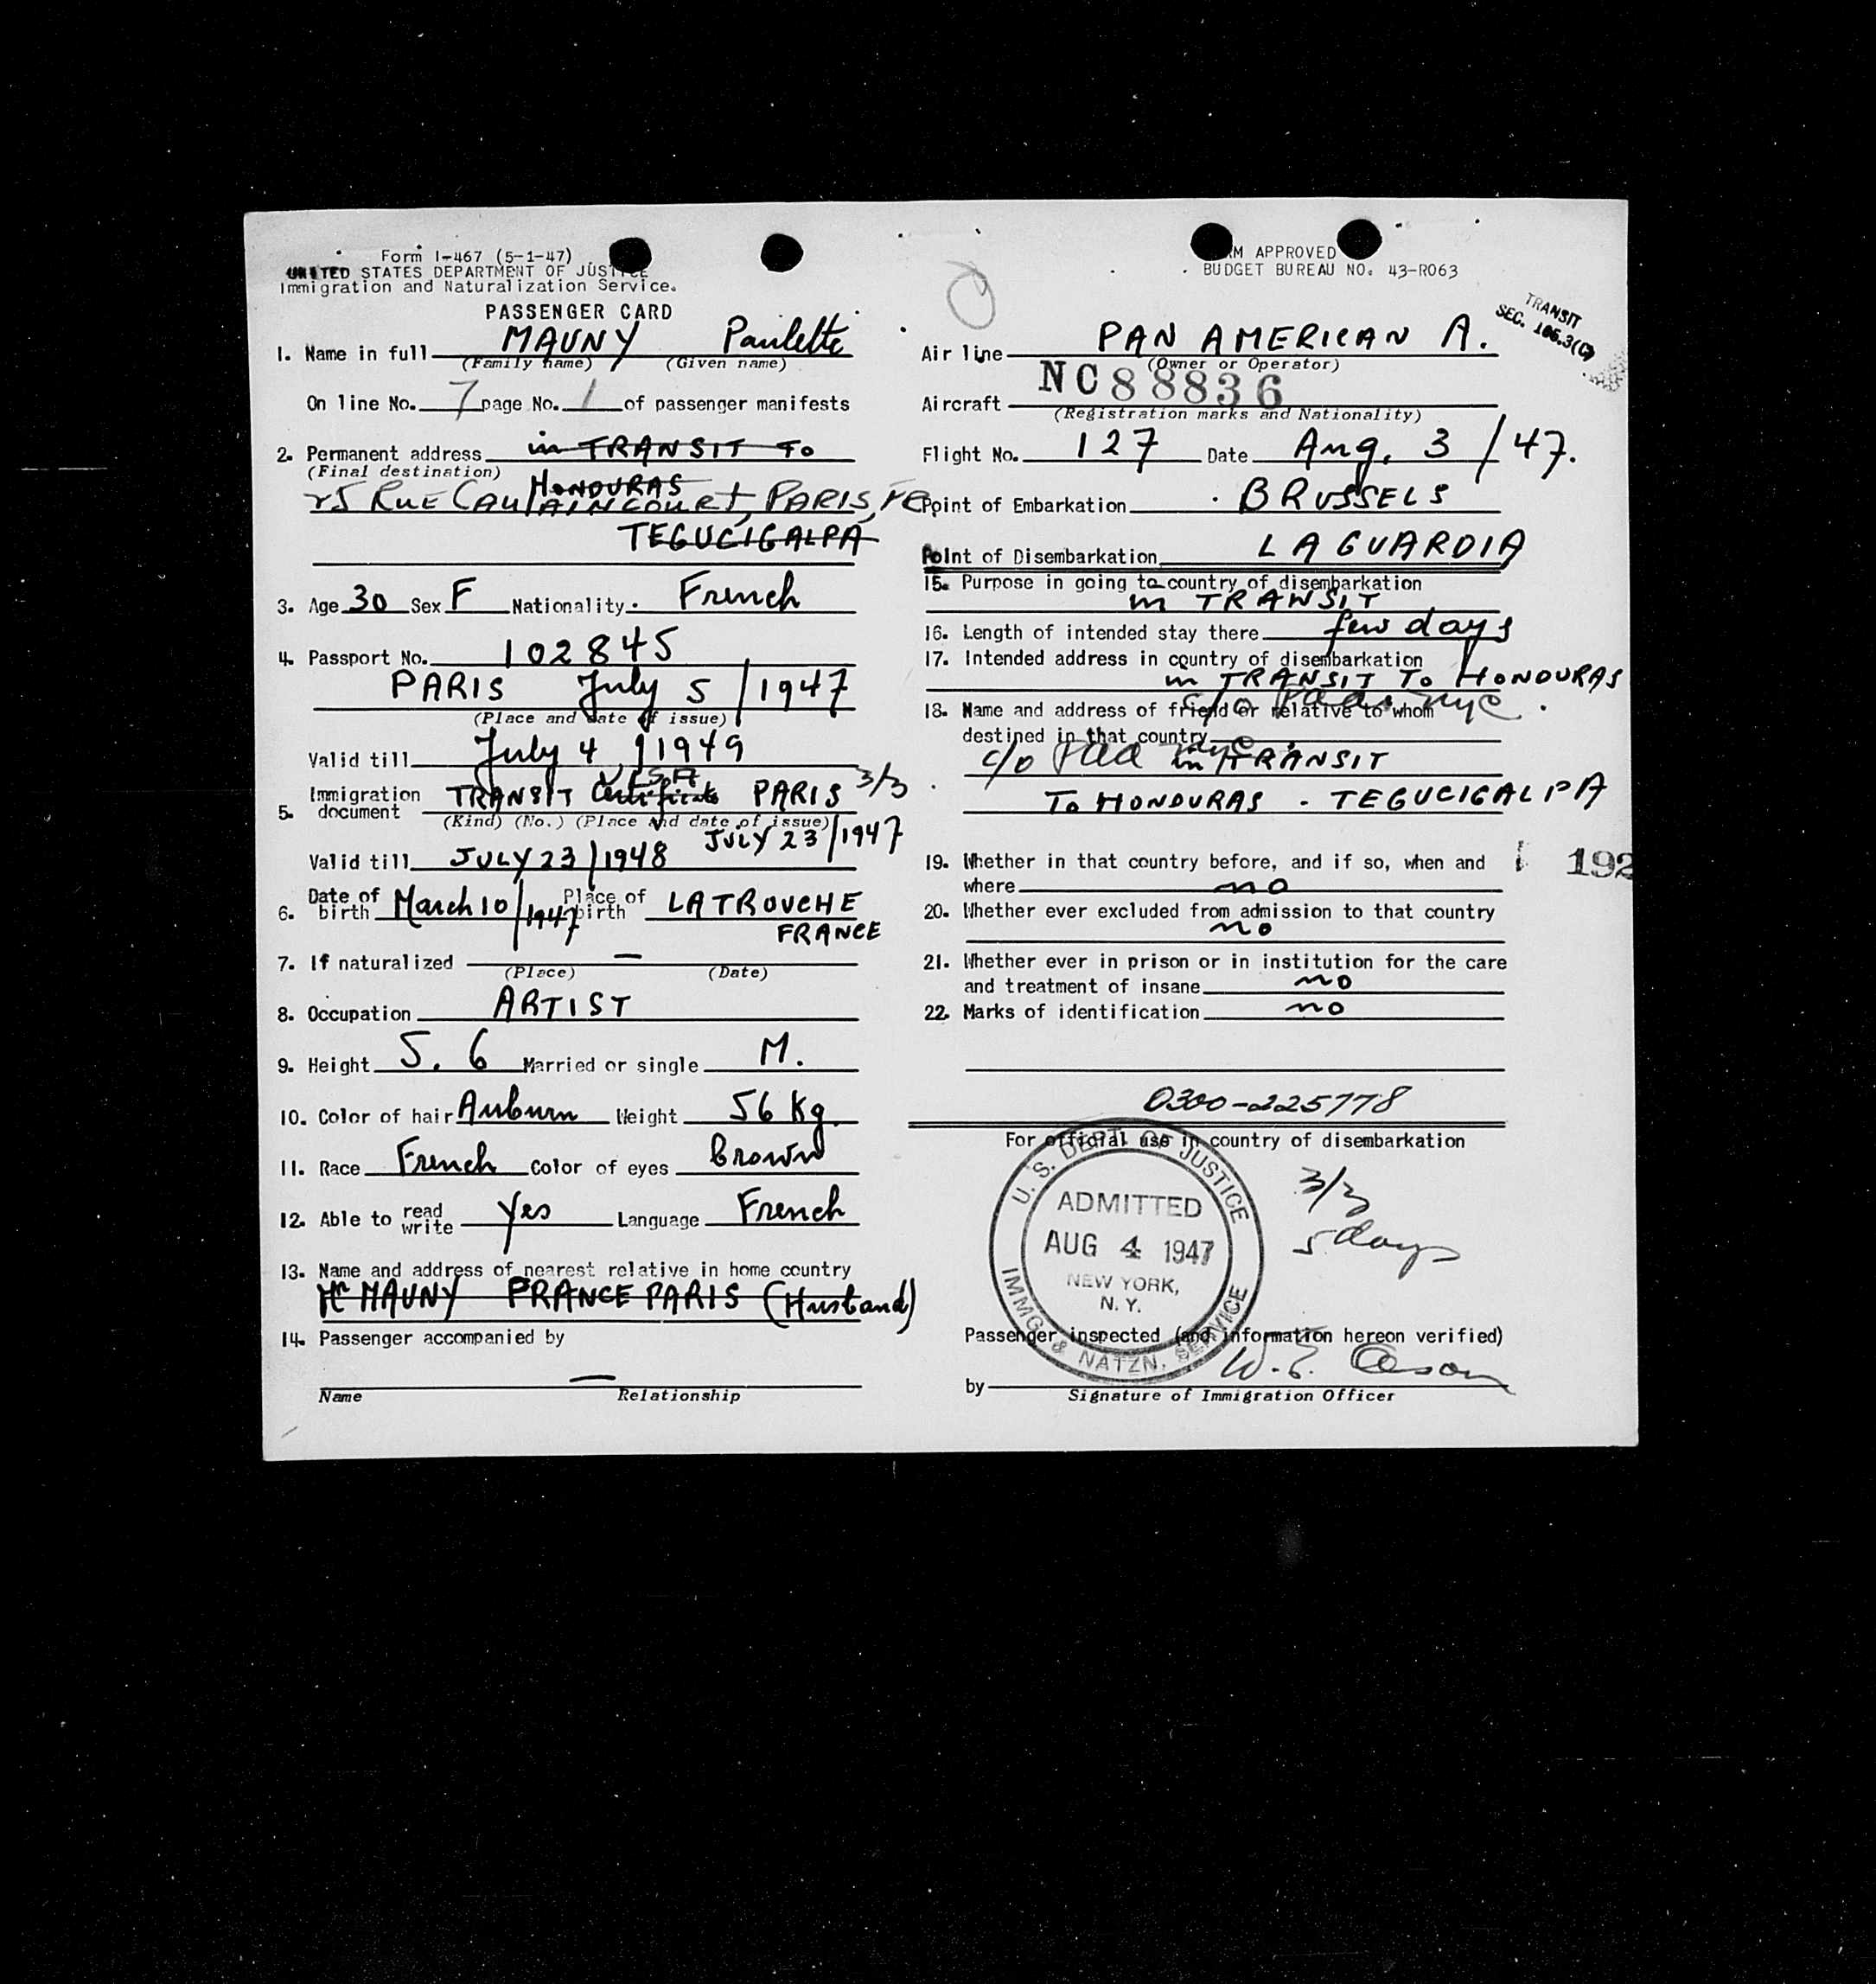 Form I-467 (5-1-47)
UNITED STATES DEPARTMENT OF JUSTICE
Immigration and Naturalization Service.
PASSENGER CARD
1. Name in full MAUNY Paulette
(Family name) (Given name)
On line No. 7 page No. 1 of passenger manifests
2. Permanent address in TRANSIT To
(Final destination)
HONDURAS
25 RUE CAULAINCOURT, PARIS, FR
TEGUCIGALPA
3. Age 30 Sex F Nationality French
4. Passport No. 102845
PARIS July 5 / 1947
(Place and date of issue)
Valid till July 4 / 1949
VISA
5. Immigration document TRANSIT Certificate PARIS 3/3
(Kind) (No.) (Place and date of issue)
JULY 23/1947
Valid till JULY 23/1948
6. Date of birth March 10/1947 Place of birth LATROUCHE
FRANCE
7. If naturalized —
(Place) (Date)
8. Occupation ARTIST
9. Height 5. 6 Married or single M.
10. Color of hair Auburn Weight 56 Kg.
11. Race French Color of eyes Brown
12. Able to read write Yes Language French
13. Name and address of nearest relative in home country
Mr MAUNY FRANCE PARIS (Husband)
14. Passenger accompanied by
—
Name Relationship
M APPROVED
BUDGET BUREAU NO. 43-R063
TRANSIT
SEC. 105.3(C)
Air line PAN AMERICAN A.
(Owner or Operator)
Aircraft NC 88836
(Registration marks and Nationality)
Flight No. 127 Date Aug. 3 / 47.
Point of Embarkation BRUSSELS
Point of Disembarkation LA GUARDIA
15. Purpose in going to country of disembarkation
in TRANSIT
16. Length of intended stay there few days
17. Intended address in country of disembarkation
in TRANSIT To HONDURAS
c/o Paa nyc
18. Name and address of friend or relative to whom
destined in that country
c/o Paa nyc in TRANSIT
To HONDURAS - TEGUCIGALPA
19. Whether in that country before, and if so, when and
where no
192
20. Whether ever excluded from admission to that country
no
21. Whether ever in prison or in institution for the care
and treatment of insane no
22. Marks of identification no
0300-225778
For official use in country of disembarkation
U. S. DEPT. OF JUSTICE
ADMITTED
AUG 4 1947
NEW YORK,
N. Y.
IMMG. & NATZN. SERVICE
3/3
5 days
Passenger inspected (and information hereon verified)
by W. E.
Signature of Immigration Officer